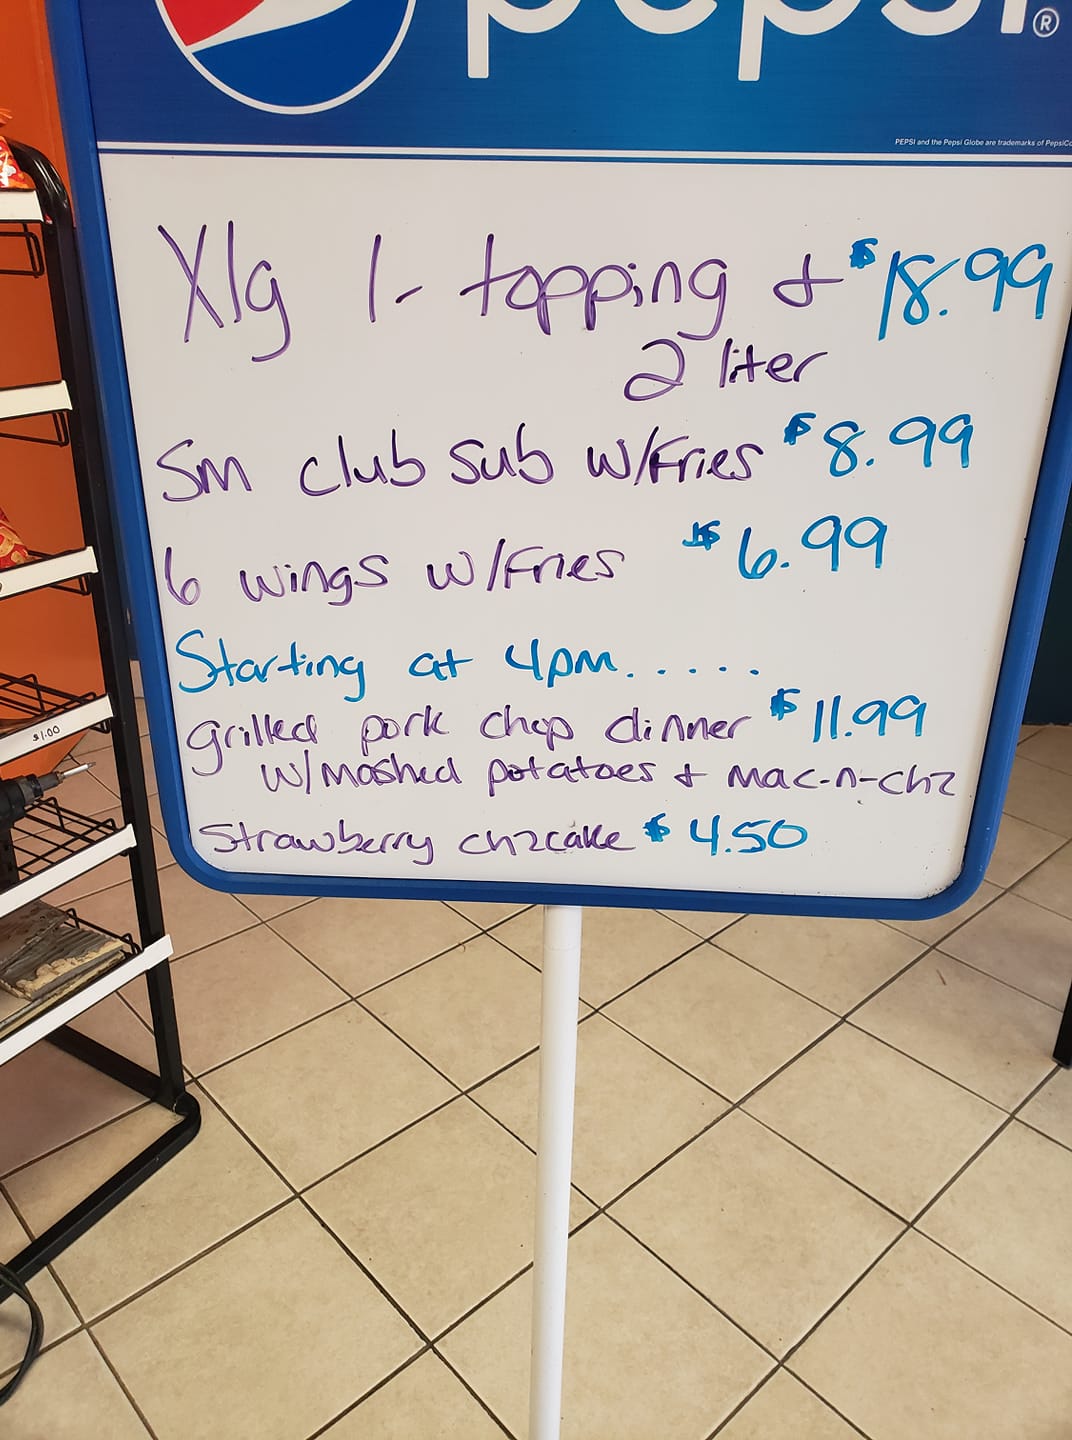 pepsi®
PEPSI and the Pepsi Globe are trademarks of PepsiCo
Xlg 1- topping + $18.99
2 liter
Sm club sub w/Fries $8.99
6 wings w/Fries $6.99
Starting at 4pm.....
grilled pork chop dinner $11.99
w/mashed potatoes + mac-n-chz
Strawberry chzcake $4.50
$1.00